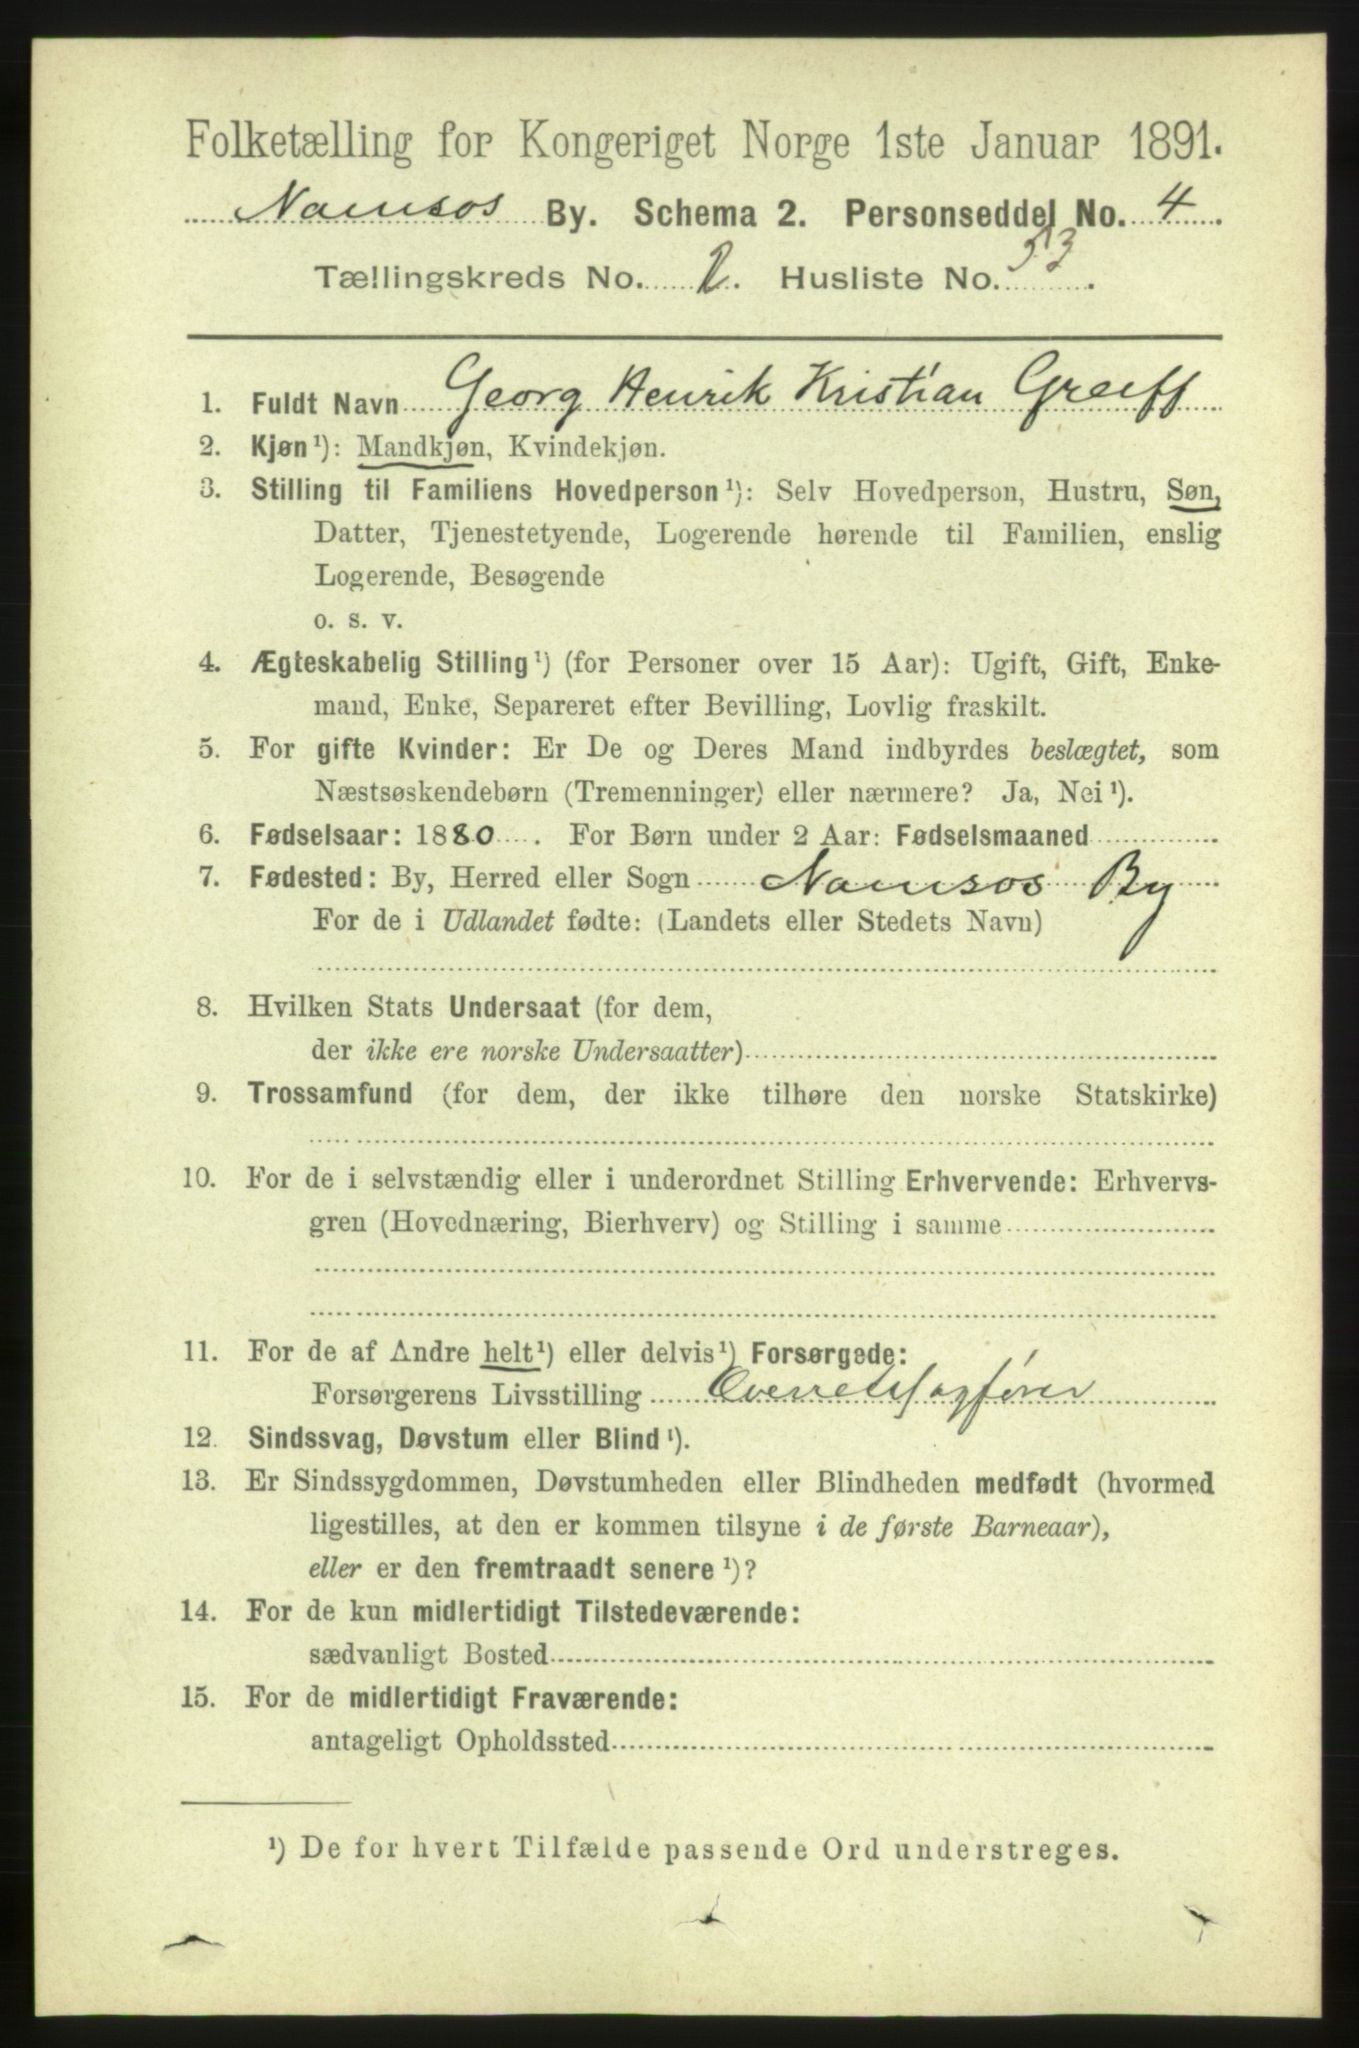 Folketælling for Kongeriget Norge 1ste Januar 1891.
Namsos By. Schema 2. Personseddel No. 4.
Tællingskreds No. 2. Husliste No. 53.
1. Fuldt Navn Georg Henrik Kristian Greiff
2. Kjøn¹): Mandkjøn, Kvindekjøn.
3. Stilling til Familiens Hovedperson¹): Selv Hovedperson, Hustru, Søn,
Datter, Tjenestetyende, Logerende hørende til Familien, enslig
Logerende, Besøgende
o. s. v.
4. Ægteskabelig Stilling¹) (for Personer over 15 Aar): Ugift, Gift, Enke-
mand, Enke, Separeret efter Bevilling, Lovlig fraskilt.
5. For gifte Kvinder: Er De og Deres Mand indbyrdes beslægtet, som
Næstsøskendebørn (Tremenninger) eller nærmere? Ja, Nei¹).
6. Fødselsaar: 1880. For Børn under 2 Aar: Fødselsmaaned
7. Fødested: By, Herred eller Sogn Namsos By
For de i Udlandet fødte: (Landets eller Stedets Navn)
8. Hvilken Stats Undersaat (for dem,
der ikke ere norske Undersaatter)
9. Trossamfund (for dem, der ikke tilhøre den norske Statskirke)
10. For de i selvstændig eller i underordnet Stilling Erhvervende: Erhvervs-
gren (Hovednæring, Bierhverv) og Stilling i samme
11. For de af Andre helt¹) eller delvis¹) Forsørgede:
Forsørgerens Livsstilling Overretssagfører
12. Sindssvag, Døvstum eller Blind¹).
13. Er Sindssygdommen, Døvstumheden eller Blindheden medfødt (hvormed
ligestilles, at den er kommen tilsyne i de første Barneaar),
eller er den fremtraadt senere¹)?
14. For de kun midlertidigt Tilstedeværende:
sædvanligt Bosted
15. For de midlertidigt Fraværende:
antageligt Opholdssted
¹) De for hvert Tilfælde passende Ord understreges.